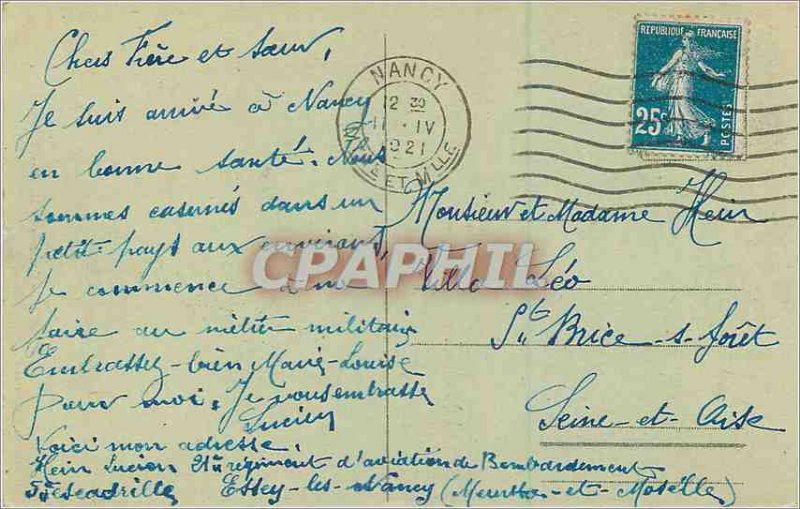 Chers Frère et Sœur,
Je suis arrivé à Nancy
en bonne santé. Nous
sommes casernés dans un
petit pays aux environs,
Je commence à me
faire au métier militaire
Embrassez-bien Marie-Louise
pour moi. Je vous embrasse
Lucien
Voici mon adresse.
Hein Lucien 21e régiment d'aviation de Bombardement
5e Escadrille Essey-les-Nancy (Meurthe-et-Moselle)
NANCY
12 30
11 · IV
1921
MTHE ET MLLE
REPUBLIQUE FRANÇAISE
25c
POSTES
Monsieur et Madame Hein
Villa Léo
St Brice-s-forêt
Seine-et-Oise
CPAPHIL